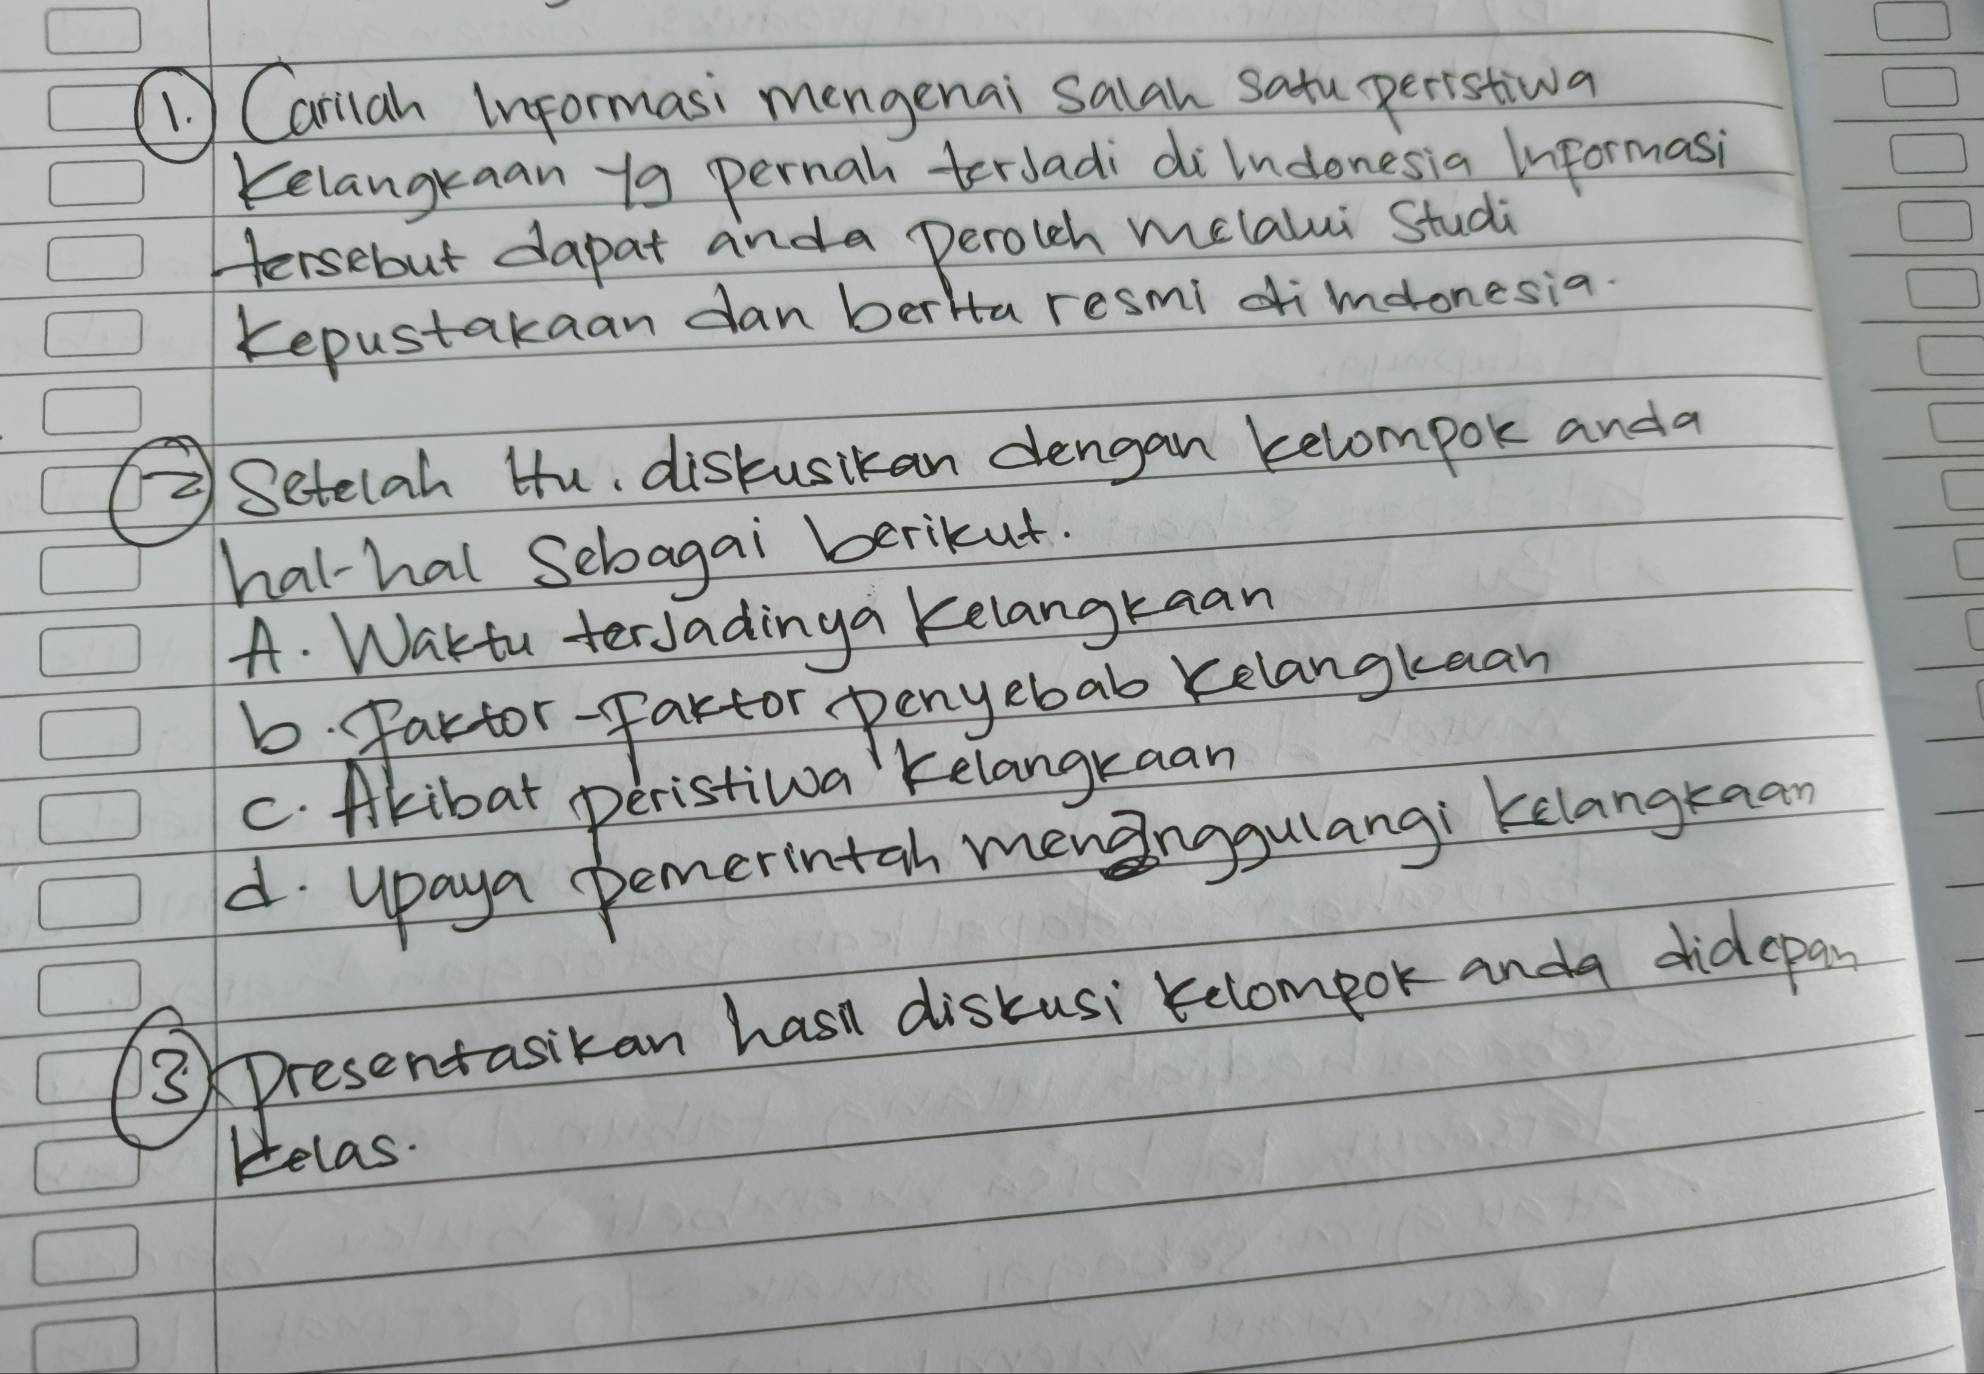 1. Carilah Informasi mengenai Salah satu peristiwa
Kelangkaan yg pernah terjadi di Indonesia Informasi
tersebut dapat anda peroleh melalui Studi
Kepustakaan dan berita resmi di indonesia.
2 Setelah itu, diskusikan dengan kelompok anda
hal-hal Sebagai berikut.
A. Waktu terjadinya Kelangkaan
b. Faktor-Faktor penyebab Kelangkaan
c. Akibat peristiwa Kelangkaan
d. Upaya pemerintah menanggulangi Kelangkaan
3 Presentasikan hasil diskusi kelompok anda didepan
Kelas.